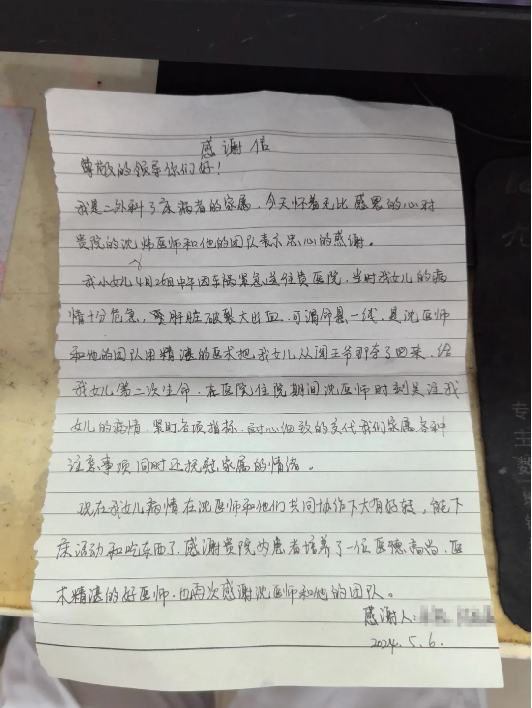 感谢信
尊敬的领导你们好！
我是二外科了床病者的家属，今天怀着无比感恩的心对
贵院的沈炜医师和他的团队表示忠心的感谢。
我小女儿4月26日中午因车祸紧急送往贵医院，当时我女儿的病
情十分危急，肝脏破裂大出血，可谓命悬一线，是沈医师
和他的团队用精湛的医术把我女儿从阎王爷那夺了回来，给
我女儿第二次生命，在医院住院期间沈医师时刻关注我
女儿的病情，紧盯各项指标，耐心细致的交代我们家属各种
注意事项同时还抚慰家属的情绪。
现在我女儿病情在沈医师和他们共同协作下大有好转，能下
床活动和吃东西了，感谢贵院为患者培养了一位医德高尚，医
术精湛的好医师，也再次感谢沈医师和他的团队。
感谢人：
2024.5.6.
专
主
数